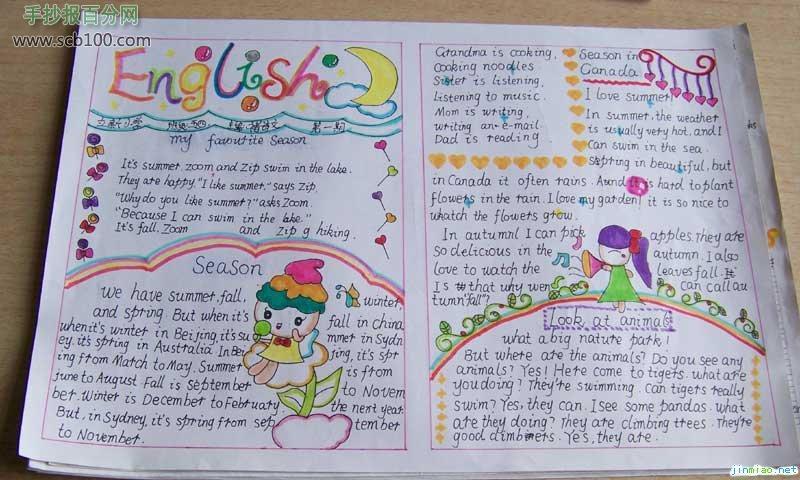 手抄报百分网
www.scb100.com
English
第一期
my favourite Season
It's summer. zoom and Zip swim in the lake.
They are happy. "I like summer," says Zip.
"Why do you like summer?" asks Zoom.
"Because I can swim in the lake."
It's fall. Zoom and Zip g hiking.
Season
We have summer, fall, winter,
and spring. But when it's fall in china
when it's winter in Beijing, it's su mmer in Sydn
ey. it's spring in Australia. In Bei jing, it's spr
ing from Match to May. Summer is from
June to August. Fall is September to Novem
ber. Winter is December to February the next year.
But, in Sydney, it's spring from sep tember
to November.
Grandma is cooking,
Cooking noodles
Sister is listening,
Listening to music.
Mom is writing,
writing an e-mail.
Dad is reading.
Season in
Canada
I love summer!
In summer, the weather
is usually very hot, and I
can swim in the sea.
Spring in beautiful, but
in Canada it often rains. And it is hard to plant
flowers in the rain. I love my garden! it is so nice to
whatch the flowers grow.
In autumn I can pick apples. They are
so delicious in the autumn. I also
love to watch the leaves fall. It
Is that why wen can call au
tumn "fall"?
Look at animals
what a big nature park!
But where are the animals? Do you see any
animals? Yes! Here come to tigers. what are
you doing? They're swimming. Can tigers really
swim? Yes, they can. I see some pandas. what
are they doing? They are climbing trees. They're
good climbiners. Yes, they are.
jinmiao.net